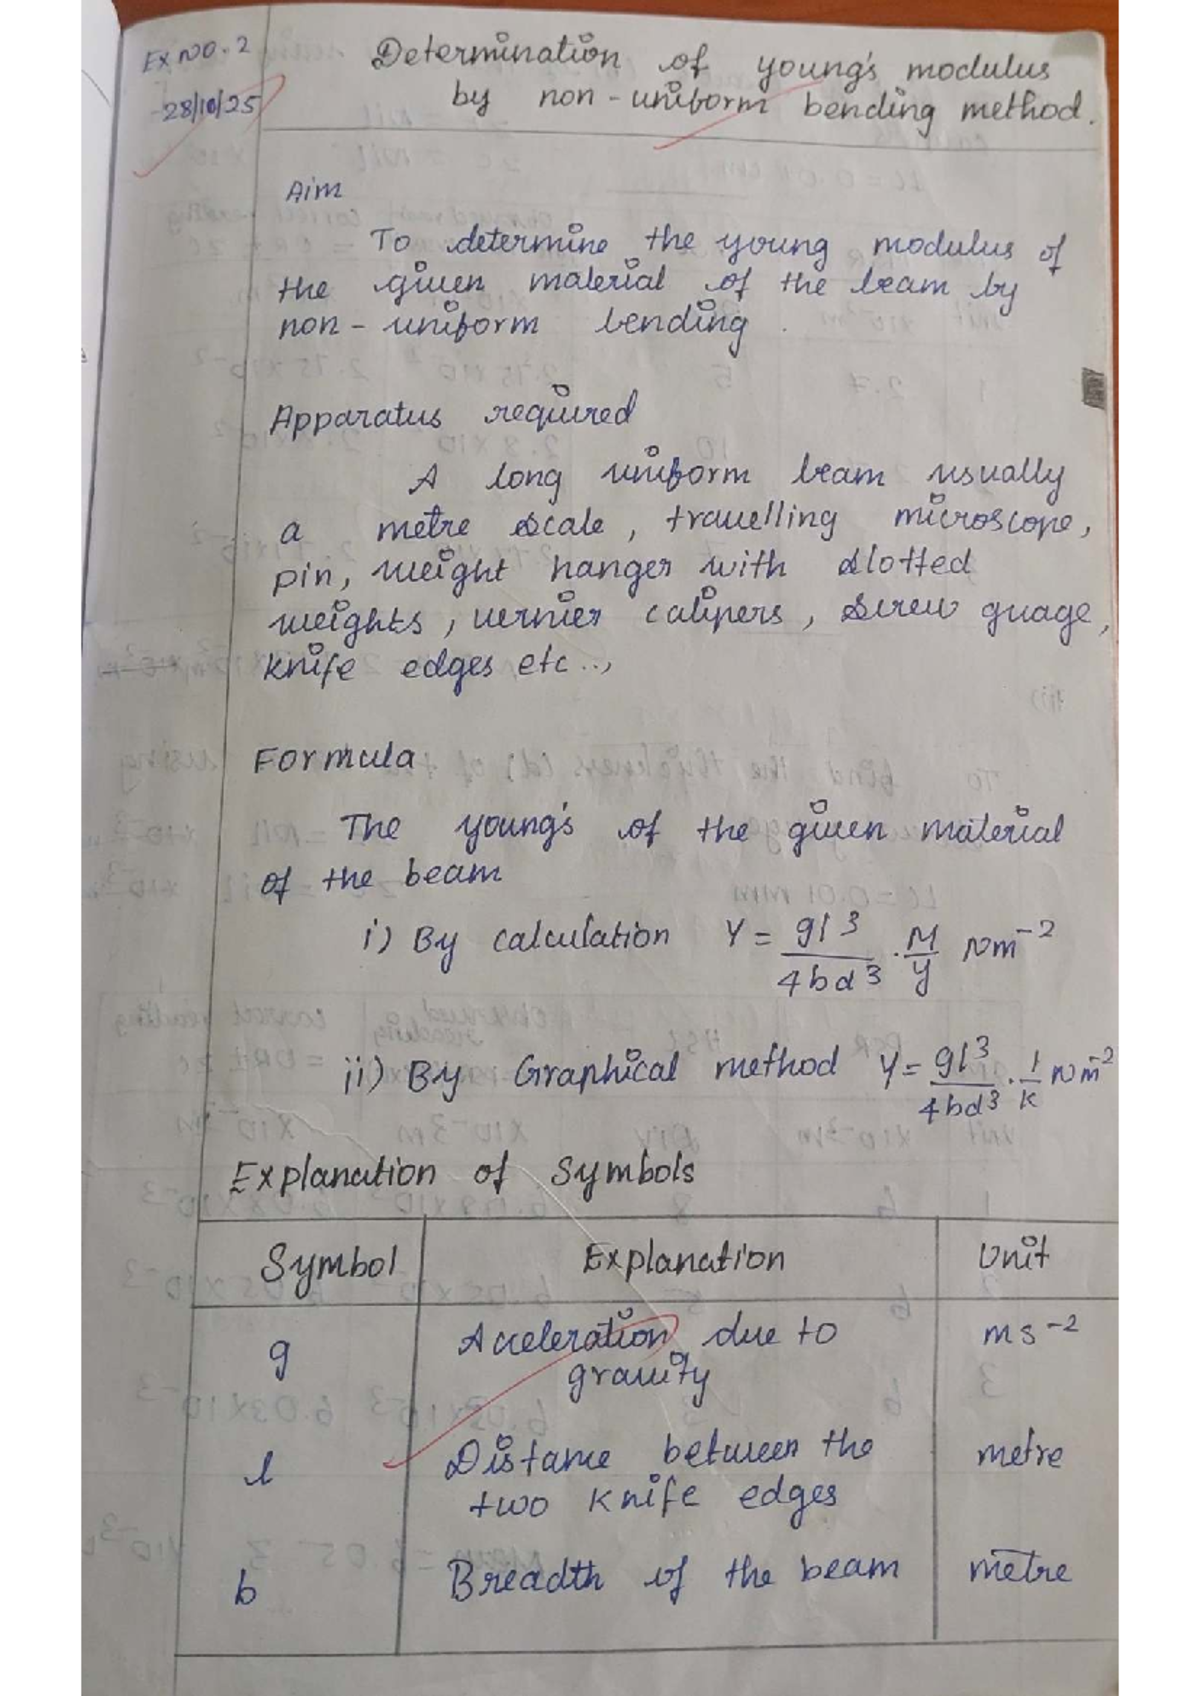 Ex NO. 2
28/10/25
Determination of young's modulus
by non-uniform bending method.
Aim
To determine the young modulus of
the given material of the beam by
non-uniform bending.
Apparatus required
A long uniform beam usually
a metre scale, travelling microscope,
pin, weight hanger with slotted
weights, vernier calipers, screw guage,
knife edges etc..,
Formula
The young's of the given material
of the beam
i) By calculation Y = gl³/4bd³ · M/y Nm⁻²
ii) By Graphical method Y = gl³/4bd³ · 1/k Nm⁻²
Explanation of Symbols
Symbol Explanation Unit
g Acceleration due to ms⁻²
gravity
l Distance between the metre
two knife edges
b Breadth of the beam metre